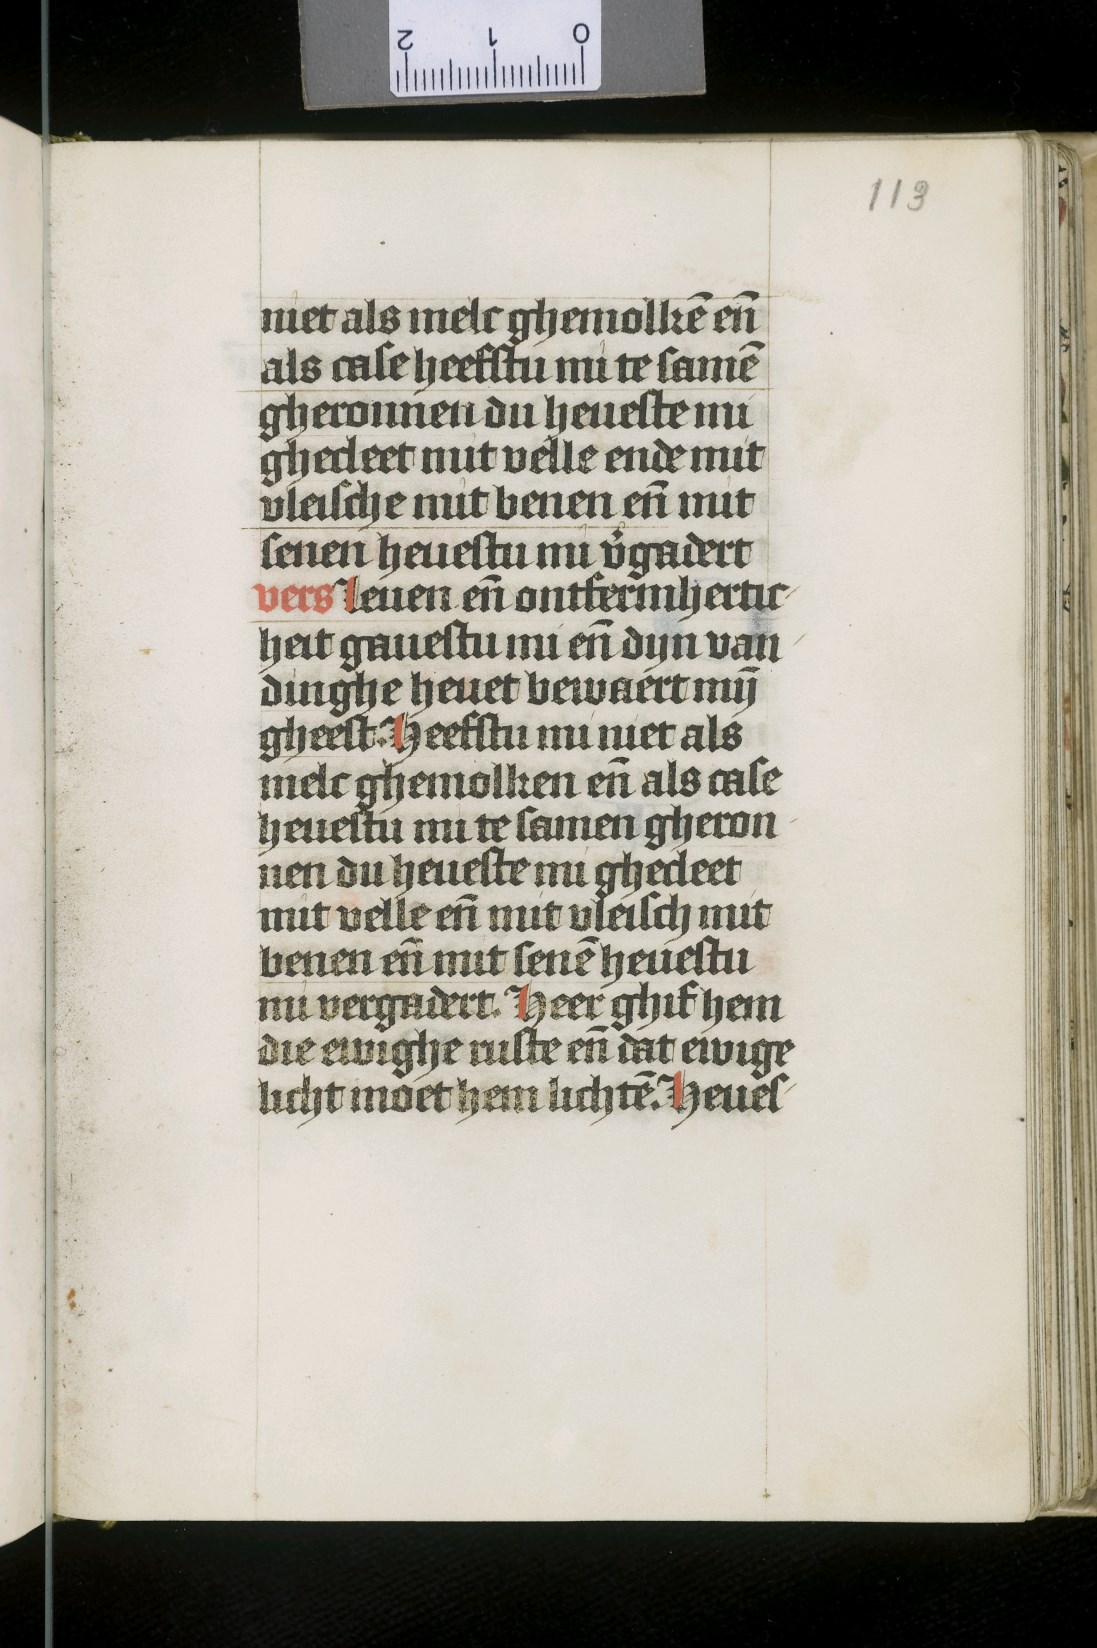 2 1 0
113
niet als melc ghemolkē en̄
als case heefstu mi te samē
gheronnen du heueste mi
ghecleet mit velle ende mit
vleische mit benen en̄ mit
senen heuestu mi v̓gadert
vers Leuen en̄ ontfermhertic-
heit gauestu mi en̄ dyn van-
dinghe heuet bewaert mȳ
gheest. Heefstu mi niet als
melc ghemolken en̄ als case
heuestu mi te samen gheron-
nen du heueste mi ghecleet
mit velle en̄ mit vleisch mit
benen en̄ mit senē heuestu
mi vergadert. Heer ghif hem
die ewighe ruste en̄ dat ewige
licht moet hem lichtē. Heues-